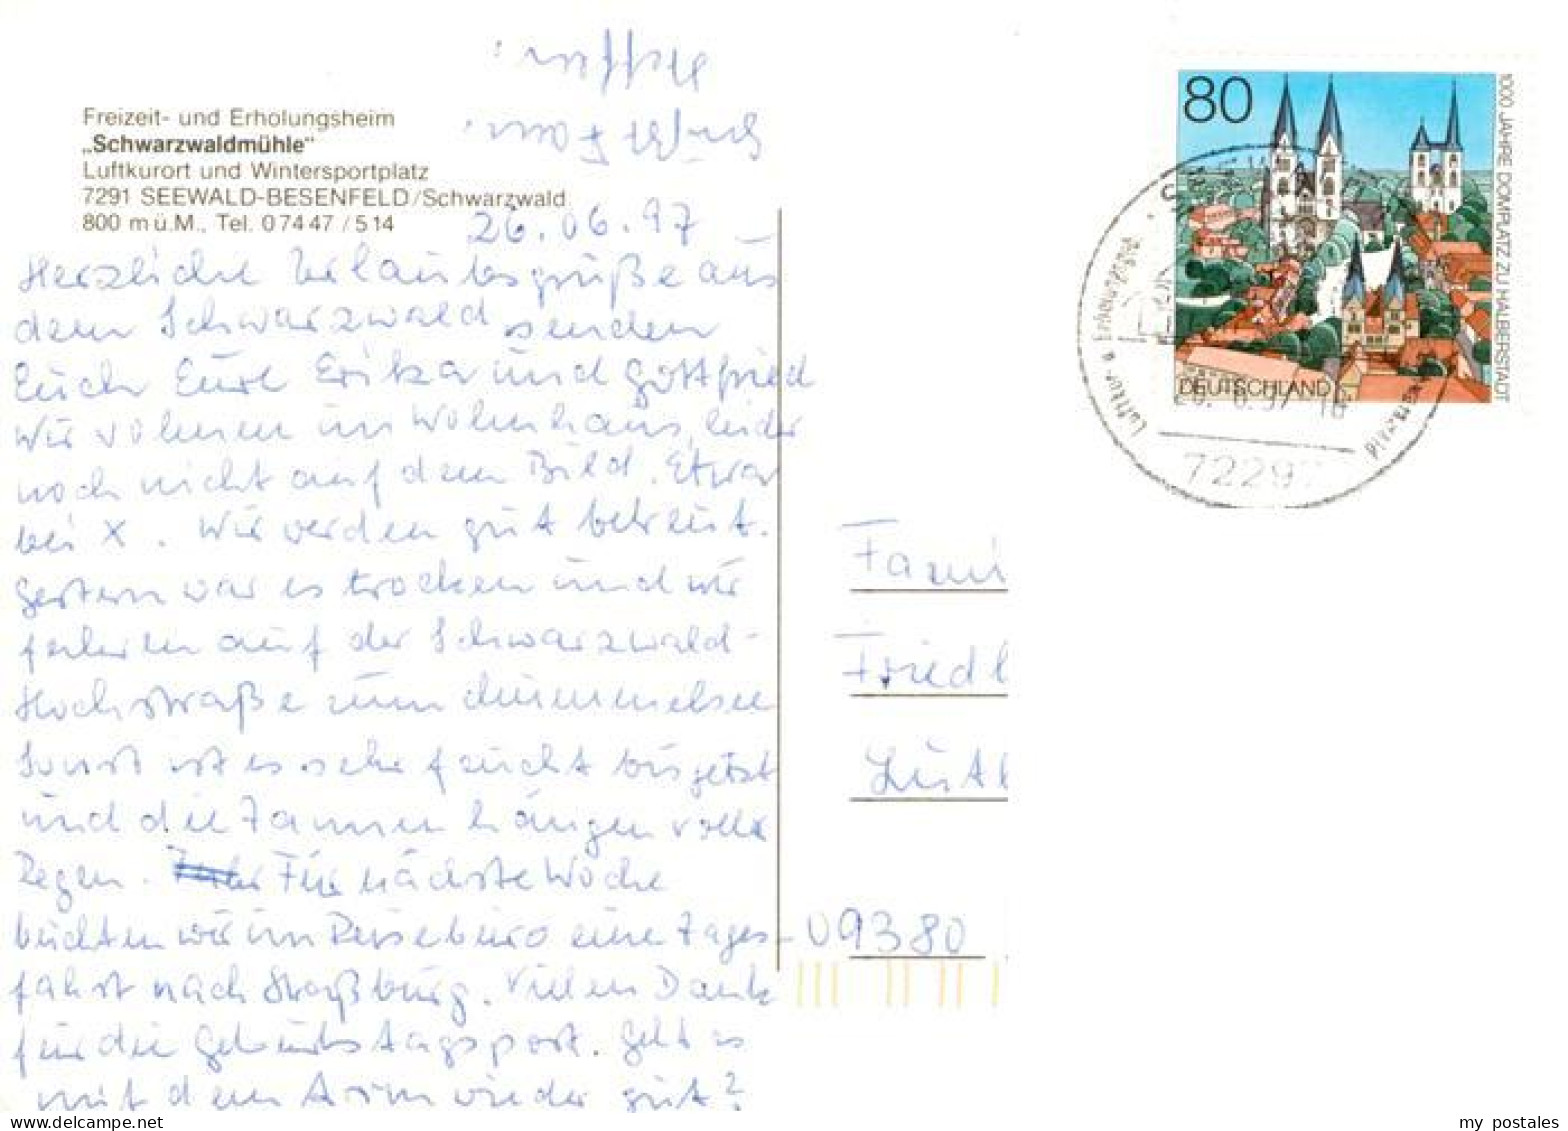 Freizeit- und Erholungsheim
„Schwarzwaldmühle"
Luftkurort und Wintersportplatz
7291 SEEWALD-BESENFELD/Schwarzwald
800 m ü.M., Tel. 0 74 47 / 514
26.06.97
Herzliche Urlaubsgrüße aus
dem Schwarzwald senden
Euch Eure Erika und Gottfried
Wir wohnen im Wohnhaus, leider
noch nicht auf dem Bild. Etwa
bei X. Wir werden gut betreut.
Gestern war es trocken und wir
fuhren auf der Schwarzwald-
Hochstraße zum Mummelsee
Sonst ist es sehr feucht bis jetzt
und die Tannen hängen voller
Regen. Für nächste Woche
buchten wir im Reisebüro eine Tages-
fahrt nach Straßburg. Vielen Dank
für die Geburtstagspost. Geht es
mit dem Arm wieder gut?
80
1000 JAHRE DOMPLATZ ZU HALBERSTADT
DEUTSCHLAND
Luftkur- u. Erholungs
72297
Fami
Friedl
09380
my postales